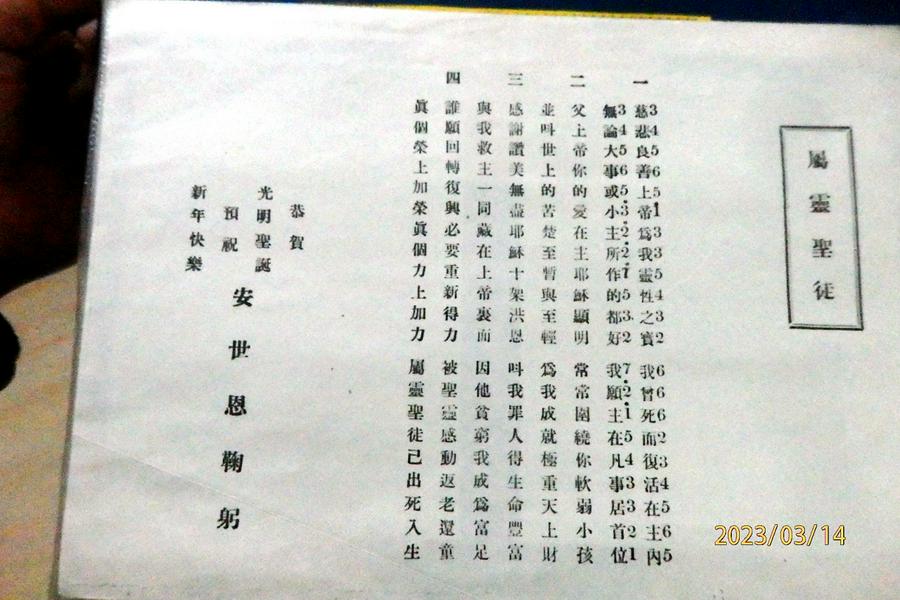 屬靈聖徒
一 慈3悲4良5善6上5帝1爲3我3靈5性4之3寶2 我6曾6死6而2復3活4在5主6內5
無3論4大5事6或5小3主2所2作7的5都3.好2 我7願2主1在5凡4事3居3首2位1
二 父上帝你的愛在主耶穌顯明 常常圍繞你軟弱小孩
並呌世上的苦楚至暫與至輕 爲我成就極重天上財
三 感謝讚美無盡耶穌十架洪恩 呌我罪人得生命豐富
與我救主一同藏在上帝裏面 因他貧窮我成爲富足
四 誰願回轉復興必要重新得力 被聖靈感動返老還童
眞個榮上加榮眞個力上加力 屬靈聖徒已出死入生
恭賀
光明聖誕
預祝
新年快樂
安世恩鞠躬
2023/03/14